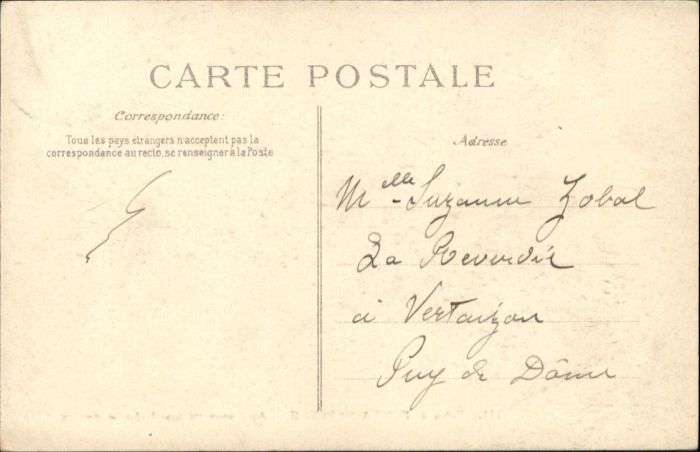 CARTE POSTALE
Correspondance:
Tous les pays étrangers n'acceptent pas la
correspondance au recto, se renseigner à la Poste
Adresse
Melle Suzanne Zobal
La Reverdie
à Vertaizon
Puy de Dôme